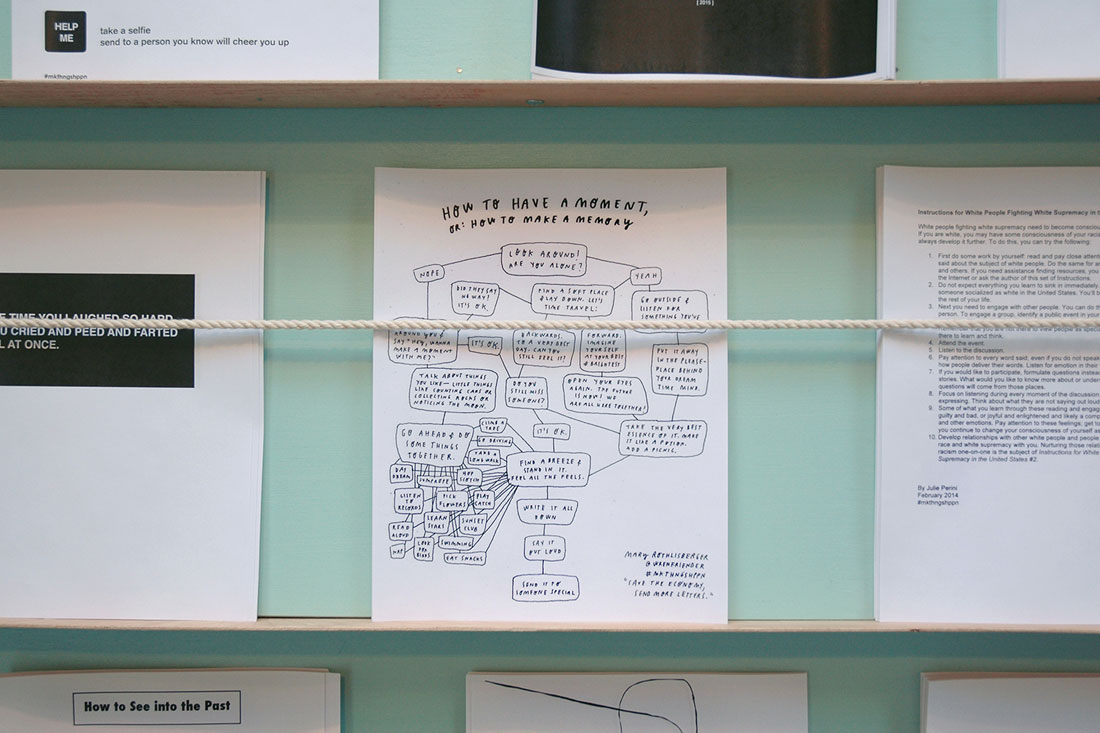 HELP
ME
take a selfie
send to a person you know will cheer you up
#mkthngshppn
[2015]
TIME YOU LAUGHED SO HARD
CRIED AND PEED AND FARTED
AT ONCE.
HOW TO HAVE A MOMENT,
OR: HOW TO MAKE A MEMORY
LOOK AROUND!
ARE YOU ALONE?
NOPE
YEAH
DID THEY SAY
NO WAY?
IT'S OK.
FIND A SOFT PLACE
& LAY DOWN. LET'S
TIME TRAVEL:
GO OUTSIDE &
LISTEN FOR
SOMETHING YOU'VE
AROUND YOU &
SAY "HEY, WANNA
MAKE A MOMENT
WITH ME?"
IT'S OK.
BACKWARDS,
TO A VERY BEST
DAY. CAN YOU
STILL FEEL IT?
FORWARD.
IMAGINE
YOURSELF
AT YOUR BEST
& BRIGHTEST
PUT IT AWAY
IN THE PLEASE-
PLACE BEHIND
YOUR DREAM
TIME MIND.
TALK ABOUT THINGS
YOU LIKE—LITTLE THINGS
LIKE COUNTING CARS OR
COLLECTING ROCKS OR
NOTICING THE MOON.
DO YOU
STILL MISS
SOMEONE?
OPEN YOUR EYES
AGAIN. THE FUTURE
IS NOW! WE
ARE ALL HERE TOGETHER!
GO AHEAD & DO
SOME THINGS
TOGETHER.
CLIMB A
TREE
GO DRIVING
TAKE A
LONG WALK
IT'S OK.
TAKE THE VERY BEST
ESSENCE OF IT. MAKE
IT LIKE A POTION.
ADD A PICNIC.
FIND A BREEZE &
STAND IN IT.
FEEL ALL THE FEELS.
DAY
DREAM
JUMPROPE
HOP
SCOTCH
LISTEN
TO
RECORDS
PICK
FLOWERS
PLAY
CATCH
LEARN
STARS
SUNSET
CLUB
READ
ALOUD
NAP
LOOK
FOR
BIRDS
SWIMMING
EAT SNACKS
WRITE IT ALL
DOWN
SAY IT
OUT LOUD
SEND IT TO
SOMEONE SPECIAL
MARY ROTHLISBERGER
@WRENFRIENDER
#MKTHNGSHPPN
"SAVE THE ECONOMY,
SEND MORE LETTERS."
Instructions for White People Fighting White Supremacy in
White people fighting white supremacy need to become
If you are white, you may have some consciousness of your
always develop it further. To do this, you can try the following:
1. First do some work by yourself: read and pay close
said about the subject of white people. Do the same for
and others. If you need assistance finding resources, you
the Internet or ask the author of this set of Instructions.
2. Do not expect everything you learn to sink in immediately.
someone socialized as white in the United States. You'll
the rest of your life.
3. Next you need to engage with other people. You can do
person. To engage a group, identify a public event in your
there to learn and think.
4. Attend the event.
5. Listen to the discussion.
6. Pay attention to every word said, even if you do not
how people deliver their words. Listen for emotion in their
7. If you would like to participate, formulate questions
stories. What would you like to know more about or
questions will come from those places.
8. Focus on listening during every moment of the discussion
expressing. Think about what they are not saying out
9. Some of what you learn through these reading and
guilty and bad, or joyful and enlightened and likely a
and other emotions. Pay attention to these feelings; get
you continue to change your consciousness of yourself
10. Develop relationships with other white people and people
race and white supremacy with you. Nurturing those
racism one-on-one is the subject of Instructions for White
Supremacy in the United States #2.
By Julie Perini
February 2014
#mkthngshppn
How to See into the Past